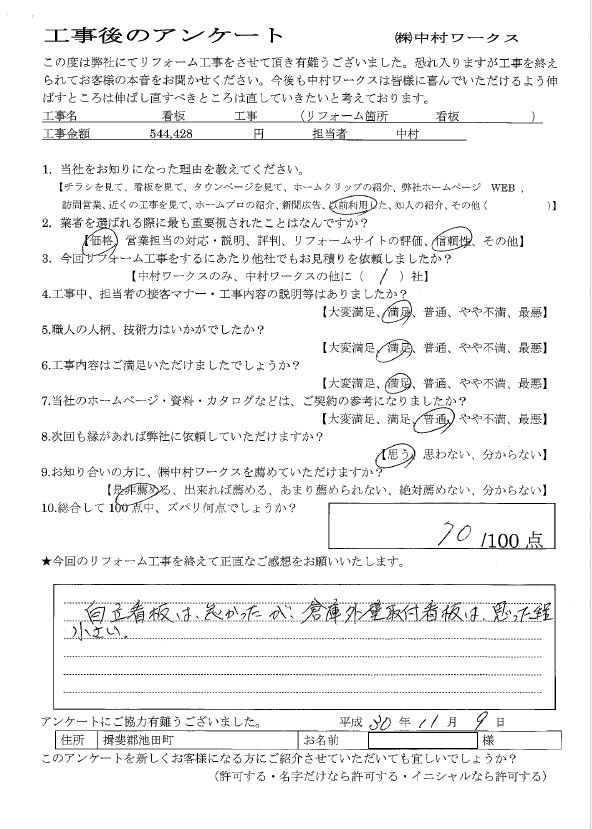 工事後のアンケート　㈱中村ワークス
この度は弊社にてリフォーム工事をさせて頂き有難うございました。恐れ入りますが工事を終え
られてお客様の本音をお聞かせください。今後も中村ワークスは皆様に喜んでいただけるよう伸
ばすところは伸ばし直すべきところは直していきたいと考えております。
工事名　看板　工事　（リフォーム箇所　看板　）
工事金額　544,428　円　担当者　中村
1. 当社をお知りになった理由を教えてください。
【チラシを見て、看板を見て、タウンページを見て、ホームクリップの紹介、弊社ホームページ　WEB 、
訪問営業、近くの工事を見て、ホームプロの紹介、新聞広告、以前利用した、知人の紹介、その他（　）】
2. 業者を選ばれる際に最も重要視されたことはなんですか？
【価格、営業担当の対応・説明、評判、リフォームサイトの評価、信頼性、その他】
3. 今回リフォーム工事をするにあたり他社でもお見積りを依頼しましたか？
【中村ワークスのみ、中村ワークスの他に（ 1 ）社】
4.工事中、担当者の接客マナー・工事内容の説明等はありましたか？
【大変満足、満足、普通、やや不満、最悪】
5.職人の人柄、技術力はいかがでしたか？
【大変満足、満足、普通、やや不満、最悪】
6.工事内容はご満足いただけましたでしょうか？
【大変満足、満足、普通、やや不満、最悪】
7.当社のホームページ・資料・カタログなどは、ご契約の参考になりましたか？
【大変満足、満足、普通、やや不満、最悪】
8.次回も縁があれば弊社に依頼していただけますか？
【思う、思わない、分からない】
9.お知り合いの方に、㈱中村ワークスを薦めていただけますか？
【是非薦める、出来れば薦める、あまり薦められない、絶対薦めない、分からない】
10.総合して 100 点中、ズバリ何点でしょうか？
70 /100 点
★今回のリフォーム工事を終えて正直なご感想をお願いいたします。
自立看板は、良かったが、倉庫外壁取付看板は、思った程
小さい。
アンケートにご協力有難うございました。　平成 30 年 11 月 9 日
住所　揖斐郡池田町　お名前　様
このアンケートを新しくお客様になる方にご紹介させていただいても宜しいでしょうか？
（許可する・名字だけなら許可する・イニシャルなら許可する）